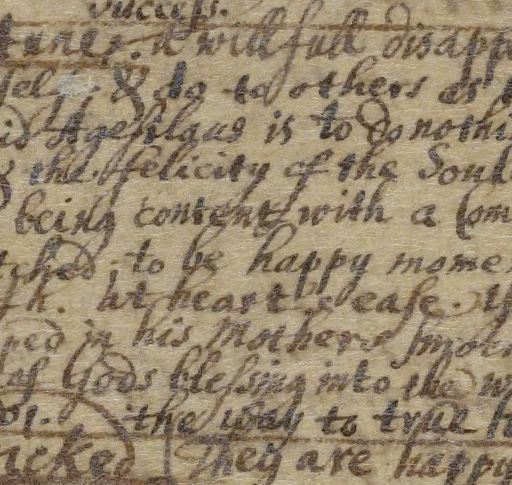 success.
tunes. a willfull disapp
& do to others as
Agesilaus is to do nothi
the felicity of the Soul
being content with a Com
to be happy mome
heart's ease.
in his Mothers smock
of Gods blessing into the w
the way to true h
icked They are happy